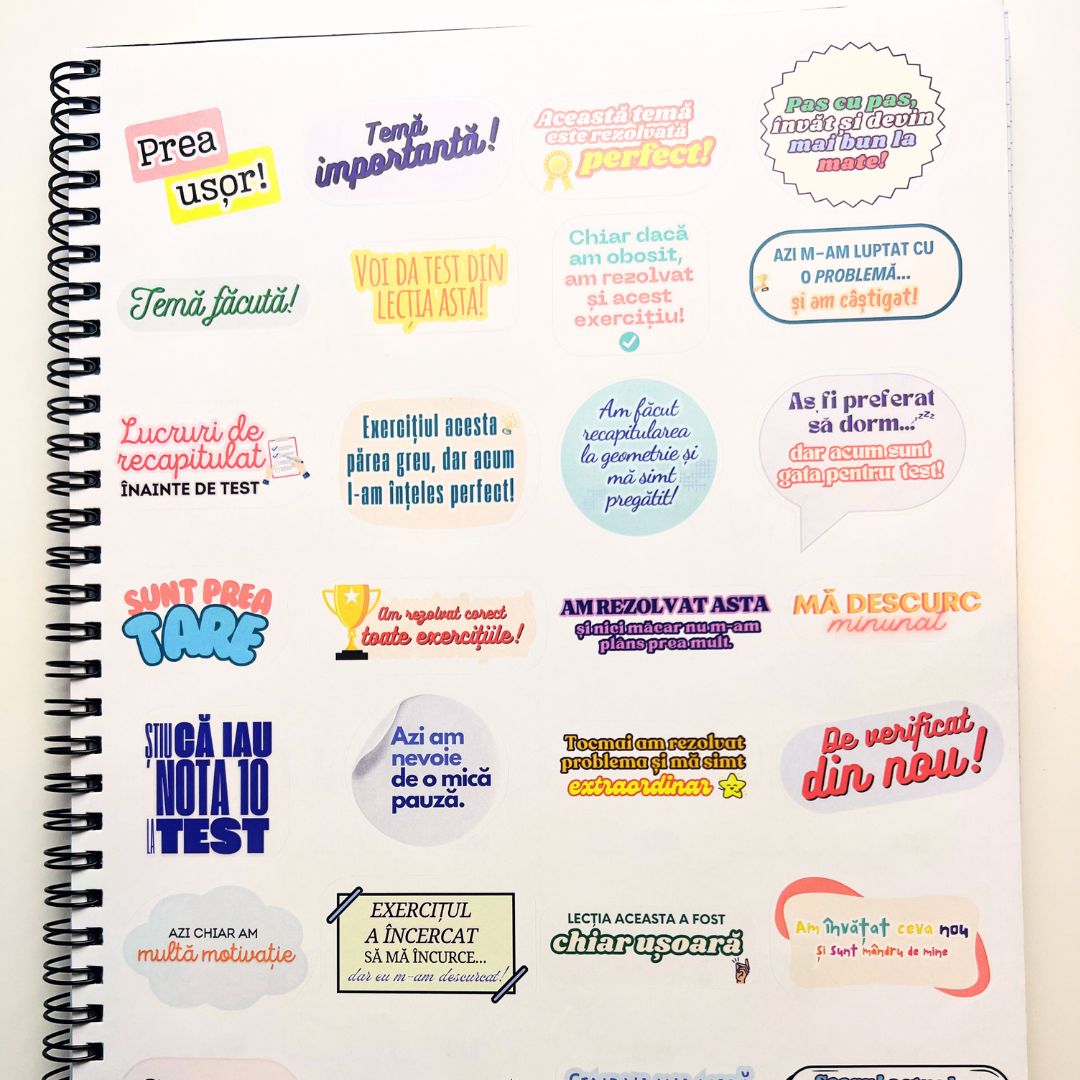 Prea
ușor!
Temă
importantă!
Această temă
este rezolvată
perfect!
Pas cu pas,
învăt si devin
mai bun la
mate!
Temă făcută!
VOI DA TEST DIN
LECȚIA ASTA!
Chiar dacă
am obosit,
am rezolvat
și acest
exercițiu!
AZI M-AM LUPTAT CU
O PROBLEMĂ...
și am câștigat!
Lucruri de
recapitulat
ÎNAINTE DE TEST
Exercițiul acesta
părea greu, dar acum
l-am înțeles perfect!
Am făcut
recapitularea
la geometrie și
mă simt
pregătit!
Aș fi preferat
să dorm... zzz
dar acum sunt
gata pentru test!
SUNT PREA
TARE
Am rezolvat corect
toate exercițiile!
AM REZOLVAT ASTA
și nici măcar nu m-am
plâns prea mult.
MĂ DESCURC
minunat
ȘTIU CĂ IAU
NOTA 10
LA TEST
Azi am
nevoie
de o mică
pauză.
Tocmai am rezolvat
problema și mă simt
extraordinar
De verificat
din nou!
AZI CHIAR AM
multă motivație
EXERCIȚUL
A ÎNCERCAT
SĂ MĂ ÎNCURCE...
dar eu m-am descurcat!
LECȚIA ACEASTA A FOST
chiar ușoară
Am învățat ceva nou
și sunt mândru de mine